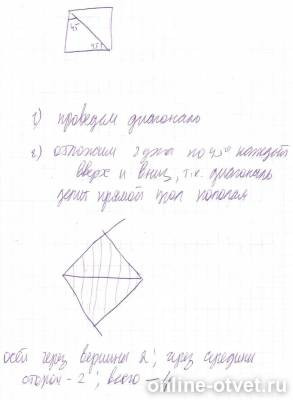 45
45
1) проведем диагональ
2) отложим 2 угла по 45° каждый
вверх и вниз, т.к. диагональ
делит прямой угол пополам
оси через вершины 2; через середины
сторон - 2; всего - 4
online-otvet.ru